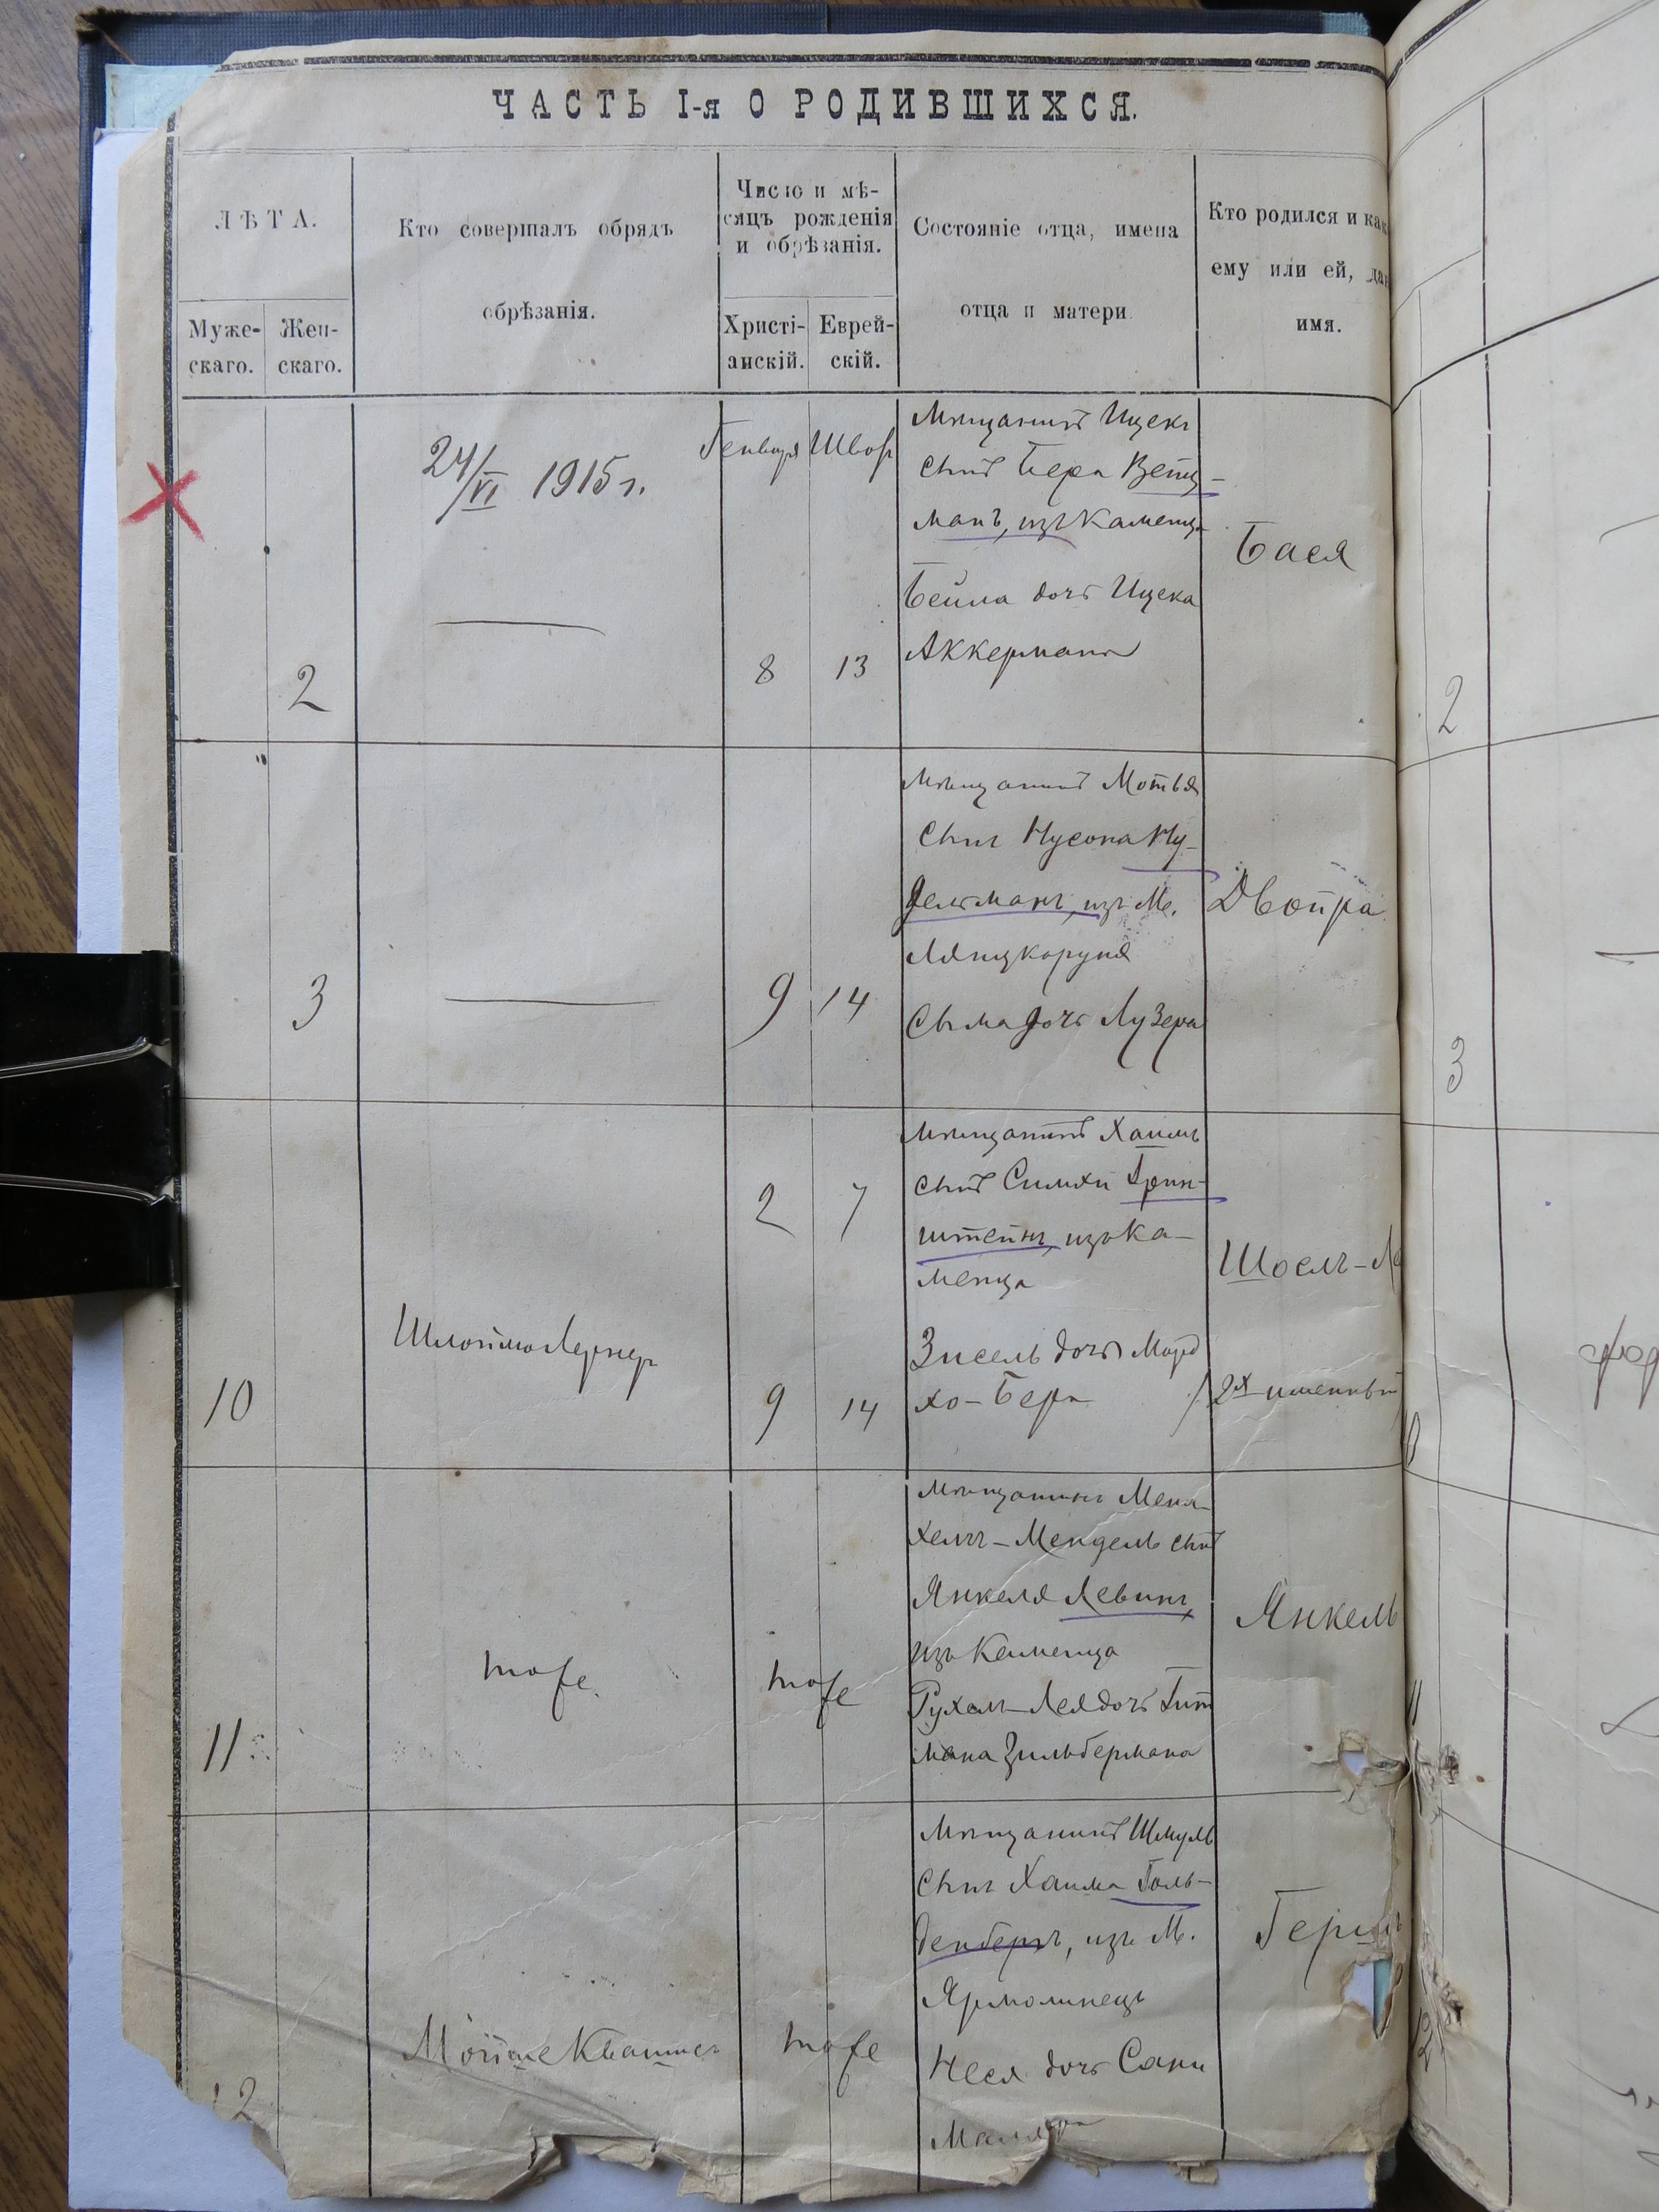 ЧАСТЬ I-я О РОДИВШИХСЯ.
ЛѢТА.
Муже-
скаго.
Жен-
скаго.
Кто совершалъ обрядъ
обрѣзанія.
Число и мѣ-
сяцъ рожденія
и обрѣзанія.
Христі-
анскій.
Еврей-
скій.
Состояніе отца, имена
отца и матери
Кто родился и как
ему или ей, дан
имя.
2
24/VI 1915 г.
Генваря
8
Шват
13
Мѣщанинъ Ицекъ
сынъ Бера Вейц-
манъ, изъ Каменца
Бейла дочь Ицека
Аккермана
Бася
2
3
9
14
Мѣщанинъ Мотья
сынъ Нусона Ну-
дельманъ, изъ М.
Ляцкоруня
Сыма дочь Лузера
Двойра
3
10
Шлойма Лернеръ
2
7
9
14
Мѣщанинъ Хаимъ
сынъ Симхи Грин-
штейнъ, изъ Ка-
менца
Зисель дочь Морд
хо-Бера
Шоелъ-Л
/2х именный
11
тоже
тоже
Мѣщанинъ Мена-
хемъ-Мендель сынъ
Янкеля Левинъ,
изъ Каменца
Рухель-Лея дочь Гит
мана Зильбермана
Янкель
11
12
Мойше
тоже
Мѣщанинъ Шмуль
сынъ Хаима Голь-
денбергъ, изъ М.
Ярмолинецъ
Неся дочь Сани
Герш